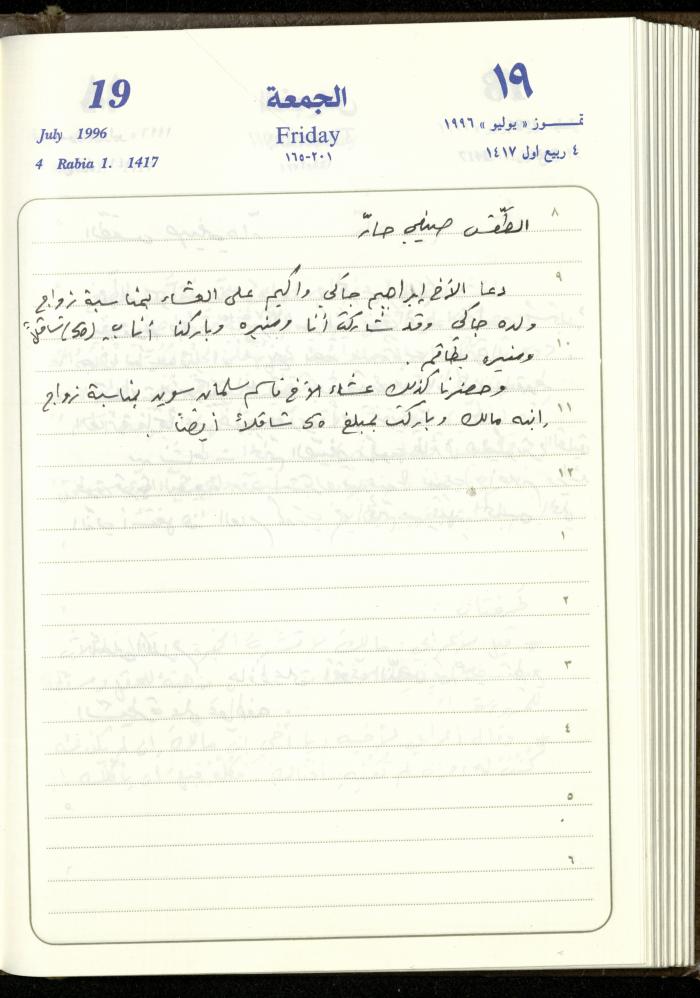 19
الجمعة
١٩
July 1996
Friday
تمـــوز « يوليو » ١٩٩٦
4 Rabia 1. 1417
١٦٥-٢٠١
٤ ربيع اول ١٤١٧
٨
الطّقس صيفي حارّ
٩
دعا الأخ إبراهيم جاكي واكيم على العشاء بمناسبة زواج
ولده جاكي وقد شاركت أنا ومنيره وباركنا أنا بـ (50) شاقلاً
١٠
ومنيره بطاقم.
وحضرنا كذلك عشاء الأخ قاسم سلمان سويد بمناسبة زواج
١١
إبنه مالك وباركت بمبلغ 50 شاقلاً أيضاً.
١٢
١
٢
٣
٤
٥
٦